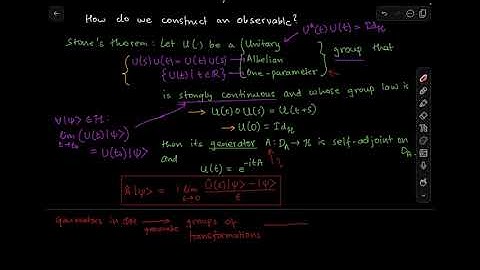 How do we construct an observable?
U*(t)U(t) = Id_H
Stone's theorem: Let U(·) be a Unitary
U(s)U(t) = U(t)U(s) Abelian group that
{U(t) | t ∈ R} One-parameter
is stongly continuous and whose group law is
∀|ψ⟩ ∈ H: → U(t) ∘ U(s) = U(t+s)
lim t→t₀ (U(t)|ψ⟩) → U(0) = Id_H
= U(t₀)|ψ⟩ then its generator A: D_A → H is self-adjoint on D_A
and U(t) = e^{-itA} ?
A|ψ⟩ = i lim t→0 (U(t)|ψ⟩ - |ψ⟩)/t
Generators in the → generate groups of transformations